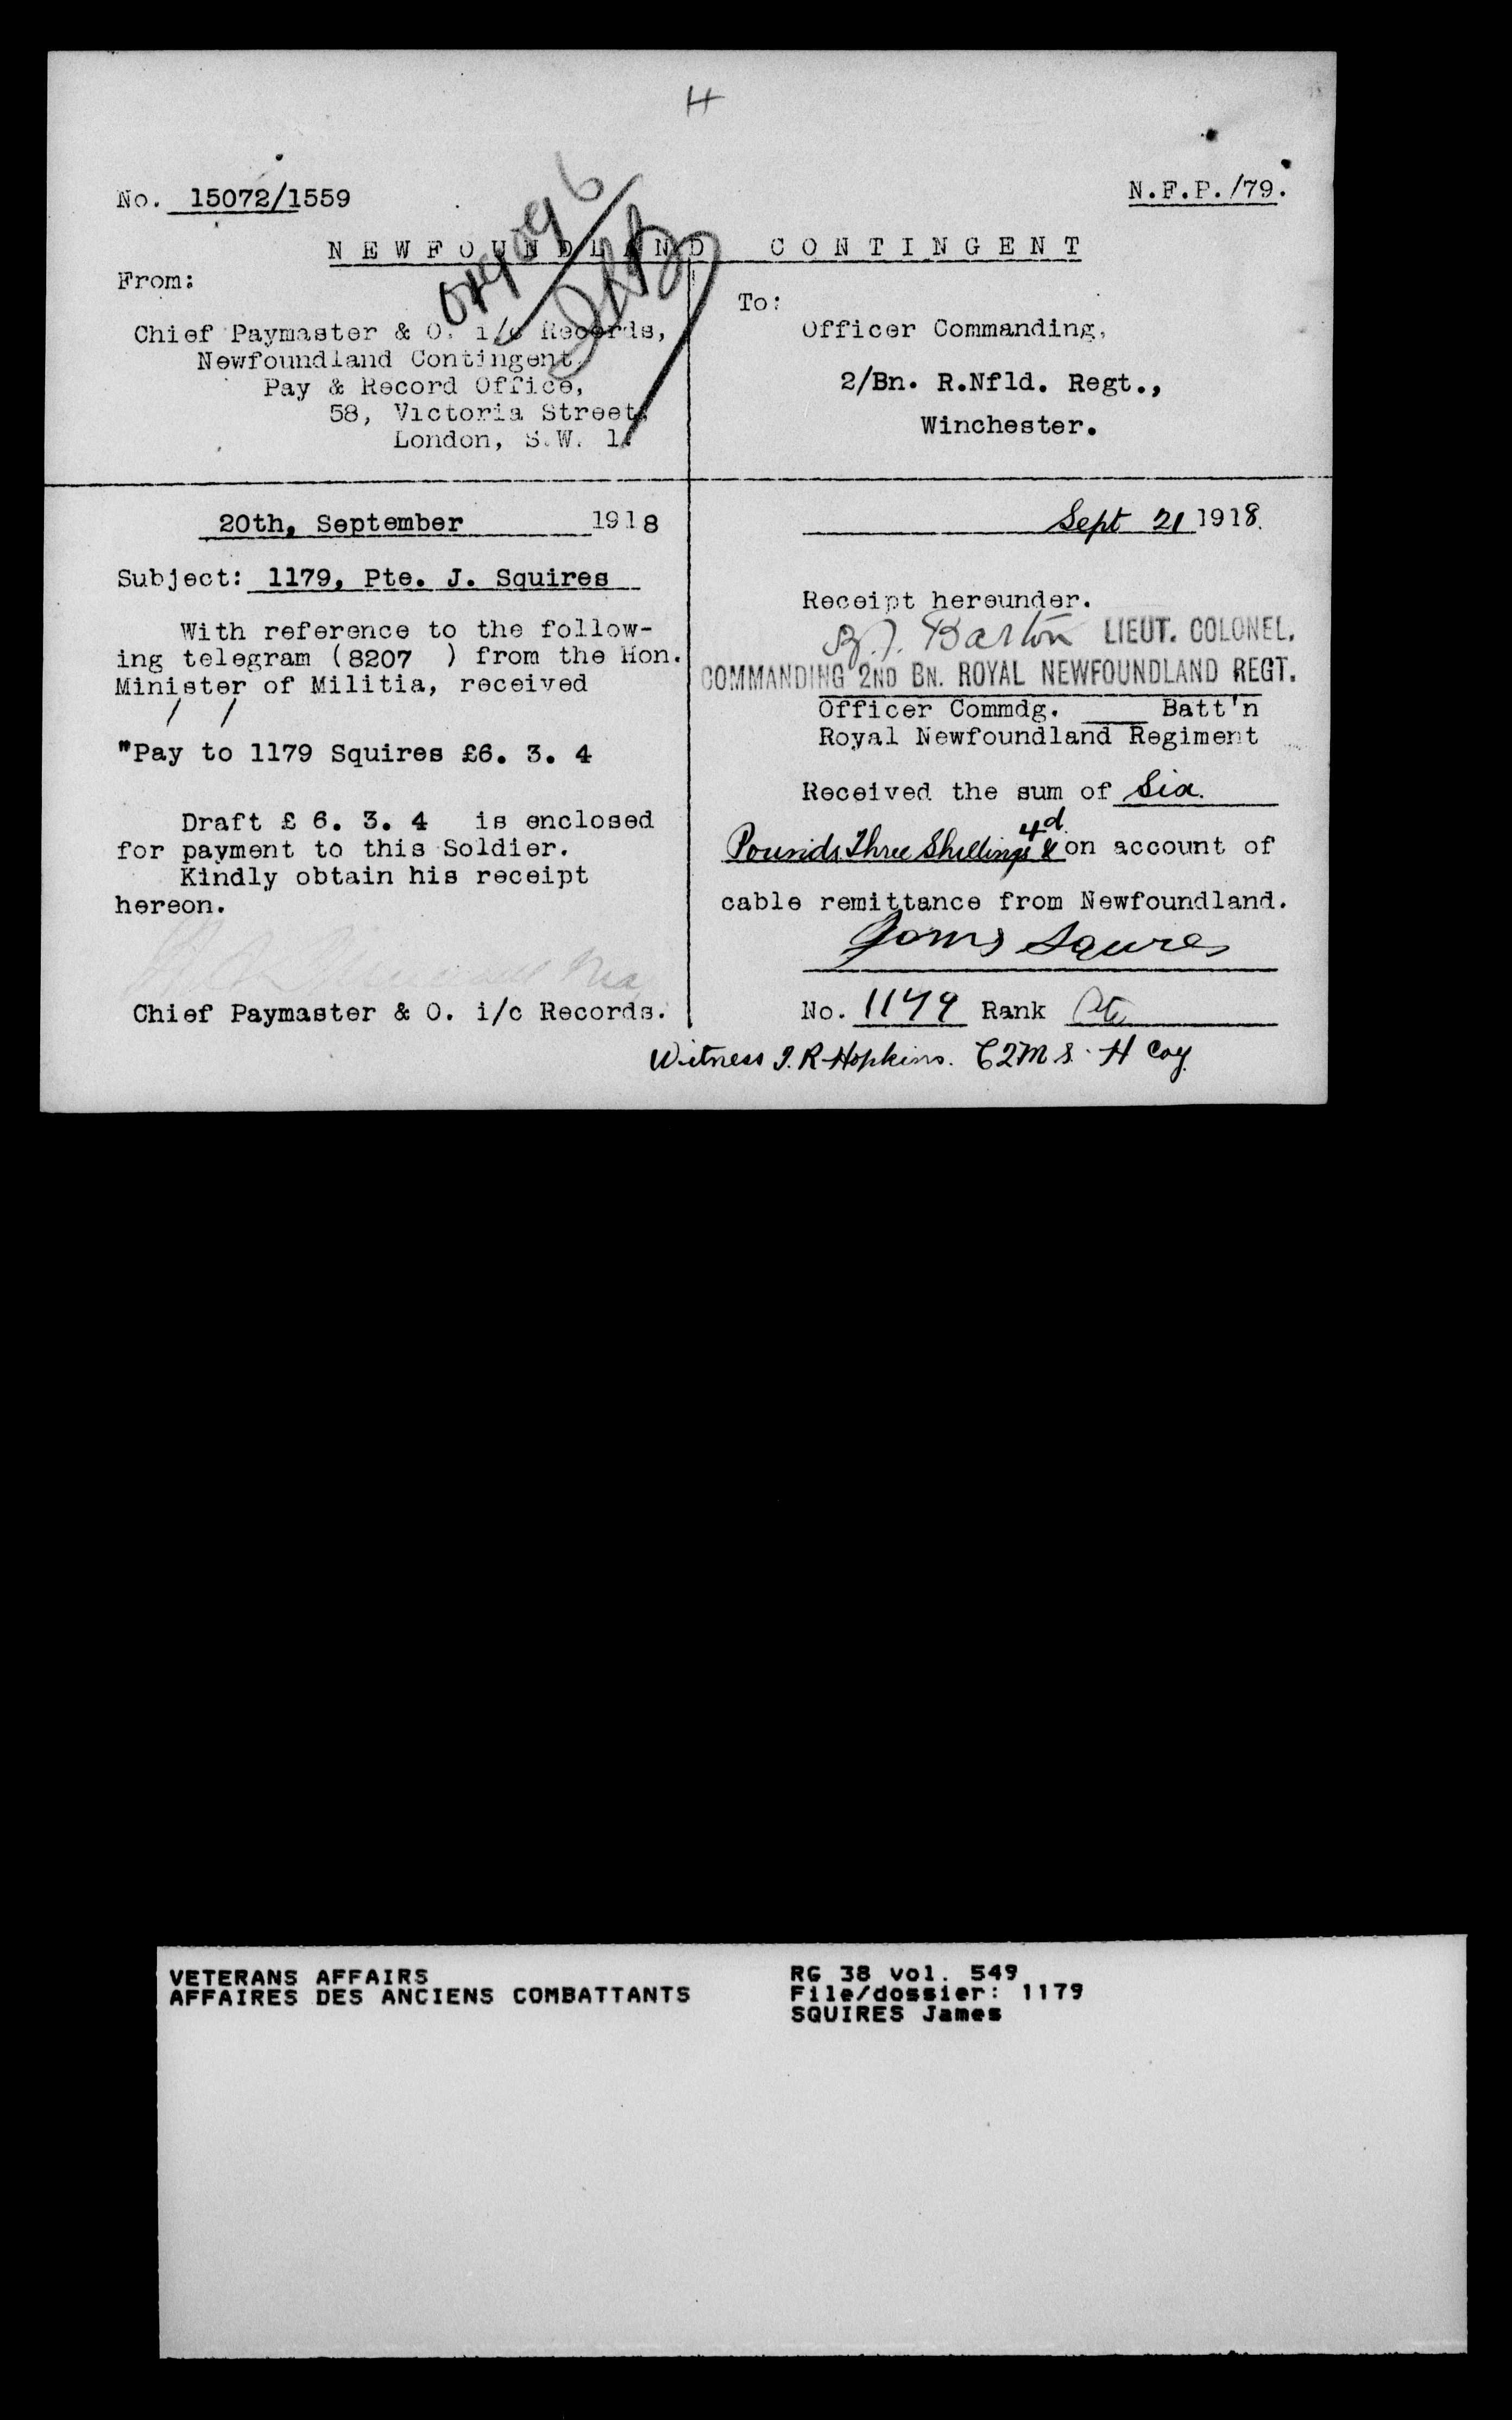 H
No. 15072/1559
N.F.P./79.
NEWFOUNDLAND CONTINGENT
From:
Chief Paymaster & O. i/c Records,
Newfoundland Contingent,
Pay & Record Office,
58, Victoria Street,
London, S.W. 1.
To:
Officer Commanding,
2/Bn. R.Nfld. Regt.,
Winchester.
20th, September 1918
Subject: 1179, Pte. J. Squires
With reference to the follow-
ing telegram (8207 ) from the Hon.
Minister of Militia, received
/ /
"Pay to 1179 Squires £6. 3. 4
Draft £ 6. 3. 4 is enclosed
for payment to this Soldier.
Kindly obtain his receipt
hereon.
Chief Paymaster & O. i/c Records.
Sept 21 1918.
Receipt hereunder.
Barton LIEUT. COLONEL.
COMMANDING 2ND BN. ROYAL NEWFOUNDLAND REGT.
Officer Commdg. Batt'n
Royal Newfoundland Regiment
Received the sum of Six
Pounds Three Shillings & 4d. on account of
cable remittance from Newfoundland.
No. 1179 Rank Pte
Witness J. R Hopkins. C2MS. H Coy.
VETERANS AFFAIRS
AFFAIRES DES ANCIENS COMBATTANTS
RG 38 vol. 549
File/dossier: 1179
SQUIRES James